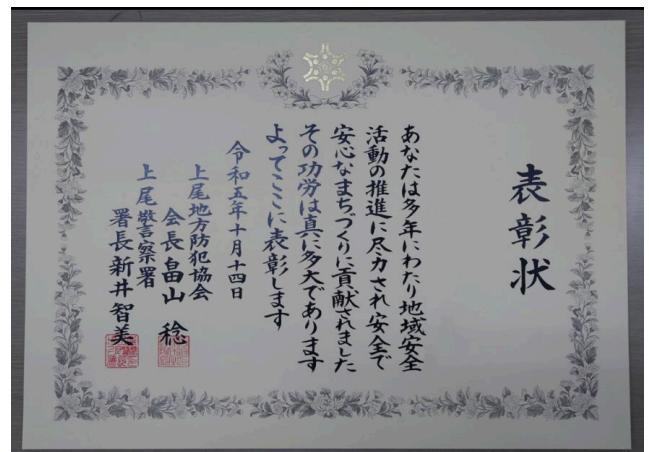 表彰状
あなたは多年にわたり地域安全
活動の推進に尽力され安全で
安心なまちづくりに貢献されました
その功労は真に多大であります
よってここに表彰します
令和五年十月十四日
上尾地方防犯協会
会長畠山稔
上尾警察署
署長新井智美